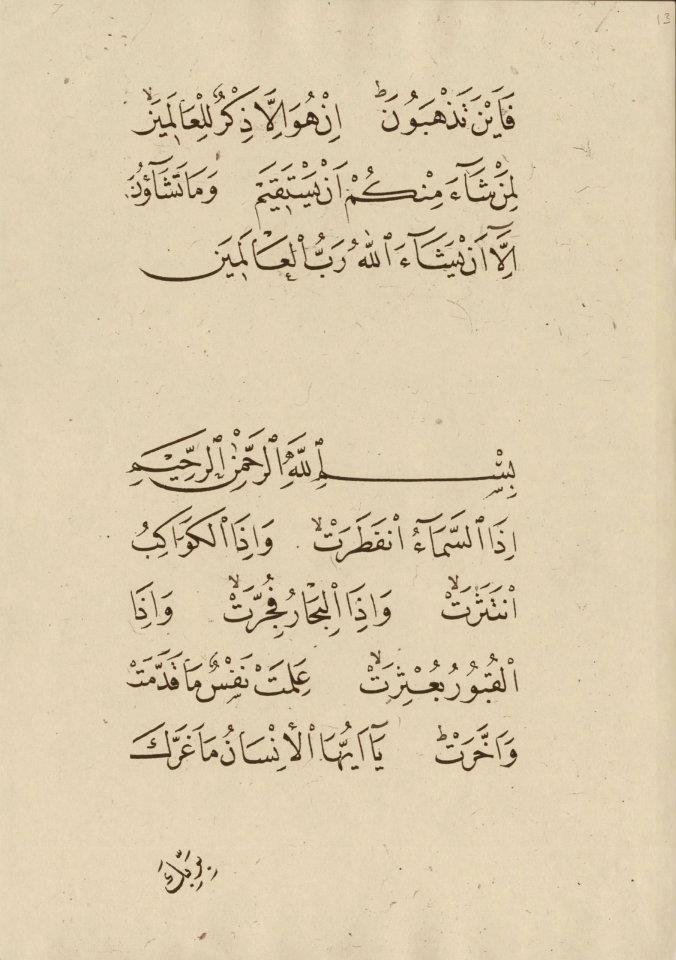 13
فَاَيْنَ تَذْهَبُونَ ؕ اِنْ هُوَ اِلَّا ذِكْرٌ لِلْعَالَمِينَ ۙ
لِمَنْ شَآءَ مِنْكُمْ اَنْ يَسْتَقِيمَ وَمَا تَشَآؤُنَ
اِلَّآ اَنْ يَشَآءَ ٱللّٰهُ رَبُّ الْعَالَمِينَ
بِسْمِ ٱللّٰهِ ٱلرَّحْمٰنِ ٱلرَّحِيمِ
اِذَا ٱلسَّمَآءُ انْفَطَرَتْ ۙ وَاِذَا الْكَوَاكِبُ
انْتَثَرَتْ ۙ وَاِذَا الْبِحَارُ فُجِّرَتْ ۙ وَاِذَا
الْقُبُورُ بُعْثِرَتْ ۙ عَلِمَتْ نَفْسٌ مَا قَدَّمَتْ
وَاَخَّرَتْ ؕ يَآ اَيُّهَا الْاِنْسَانُ مَا غَرَّكَ
بِرَبِّكَ